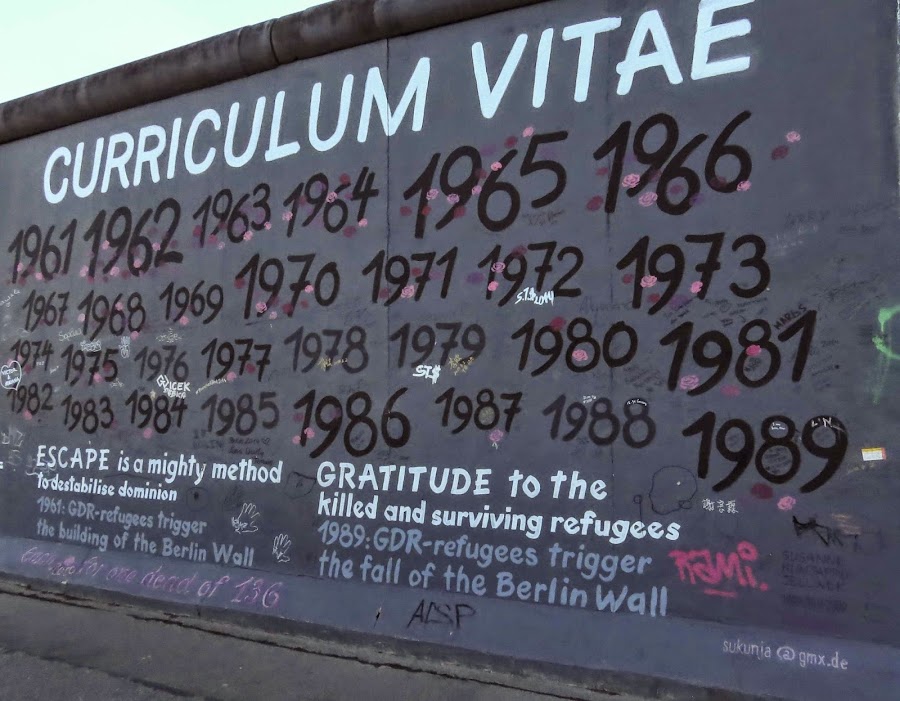 CURRICULUM VITAE
1961 1962 1963 1964 1965 1966
1967 1968 1969 1970 1971 1972 1973
1974 1975 1976 1977 1978 1979 1980 1981
1982 1983 1984 1985 1986 1987 1988 1989
ESCAPE is a mighty method
to destabilise dominion
1961: GDR-refugees trigger
the building of the Berlin Wall
GRATITUDE to the
killed and surviving refugees
1989: GDR-refugees trigger
the fall of the Berlin Wall
for one dead of 136
RAMi.
sukunja@gmx.de